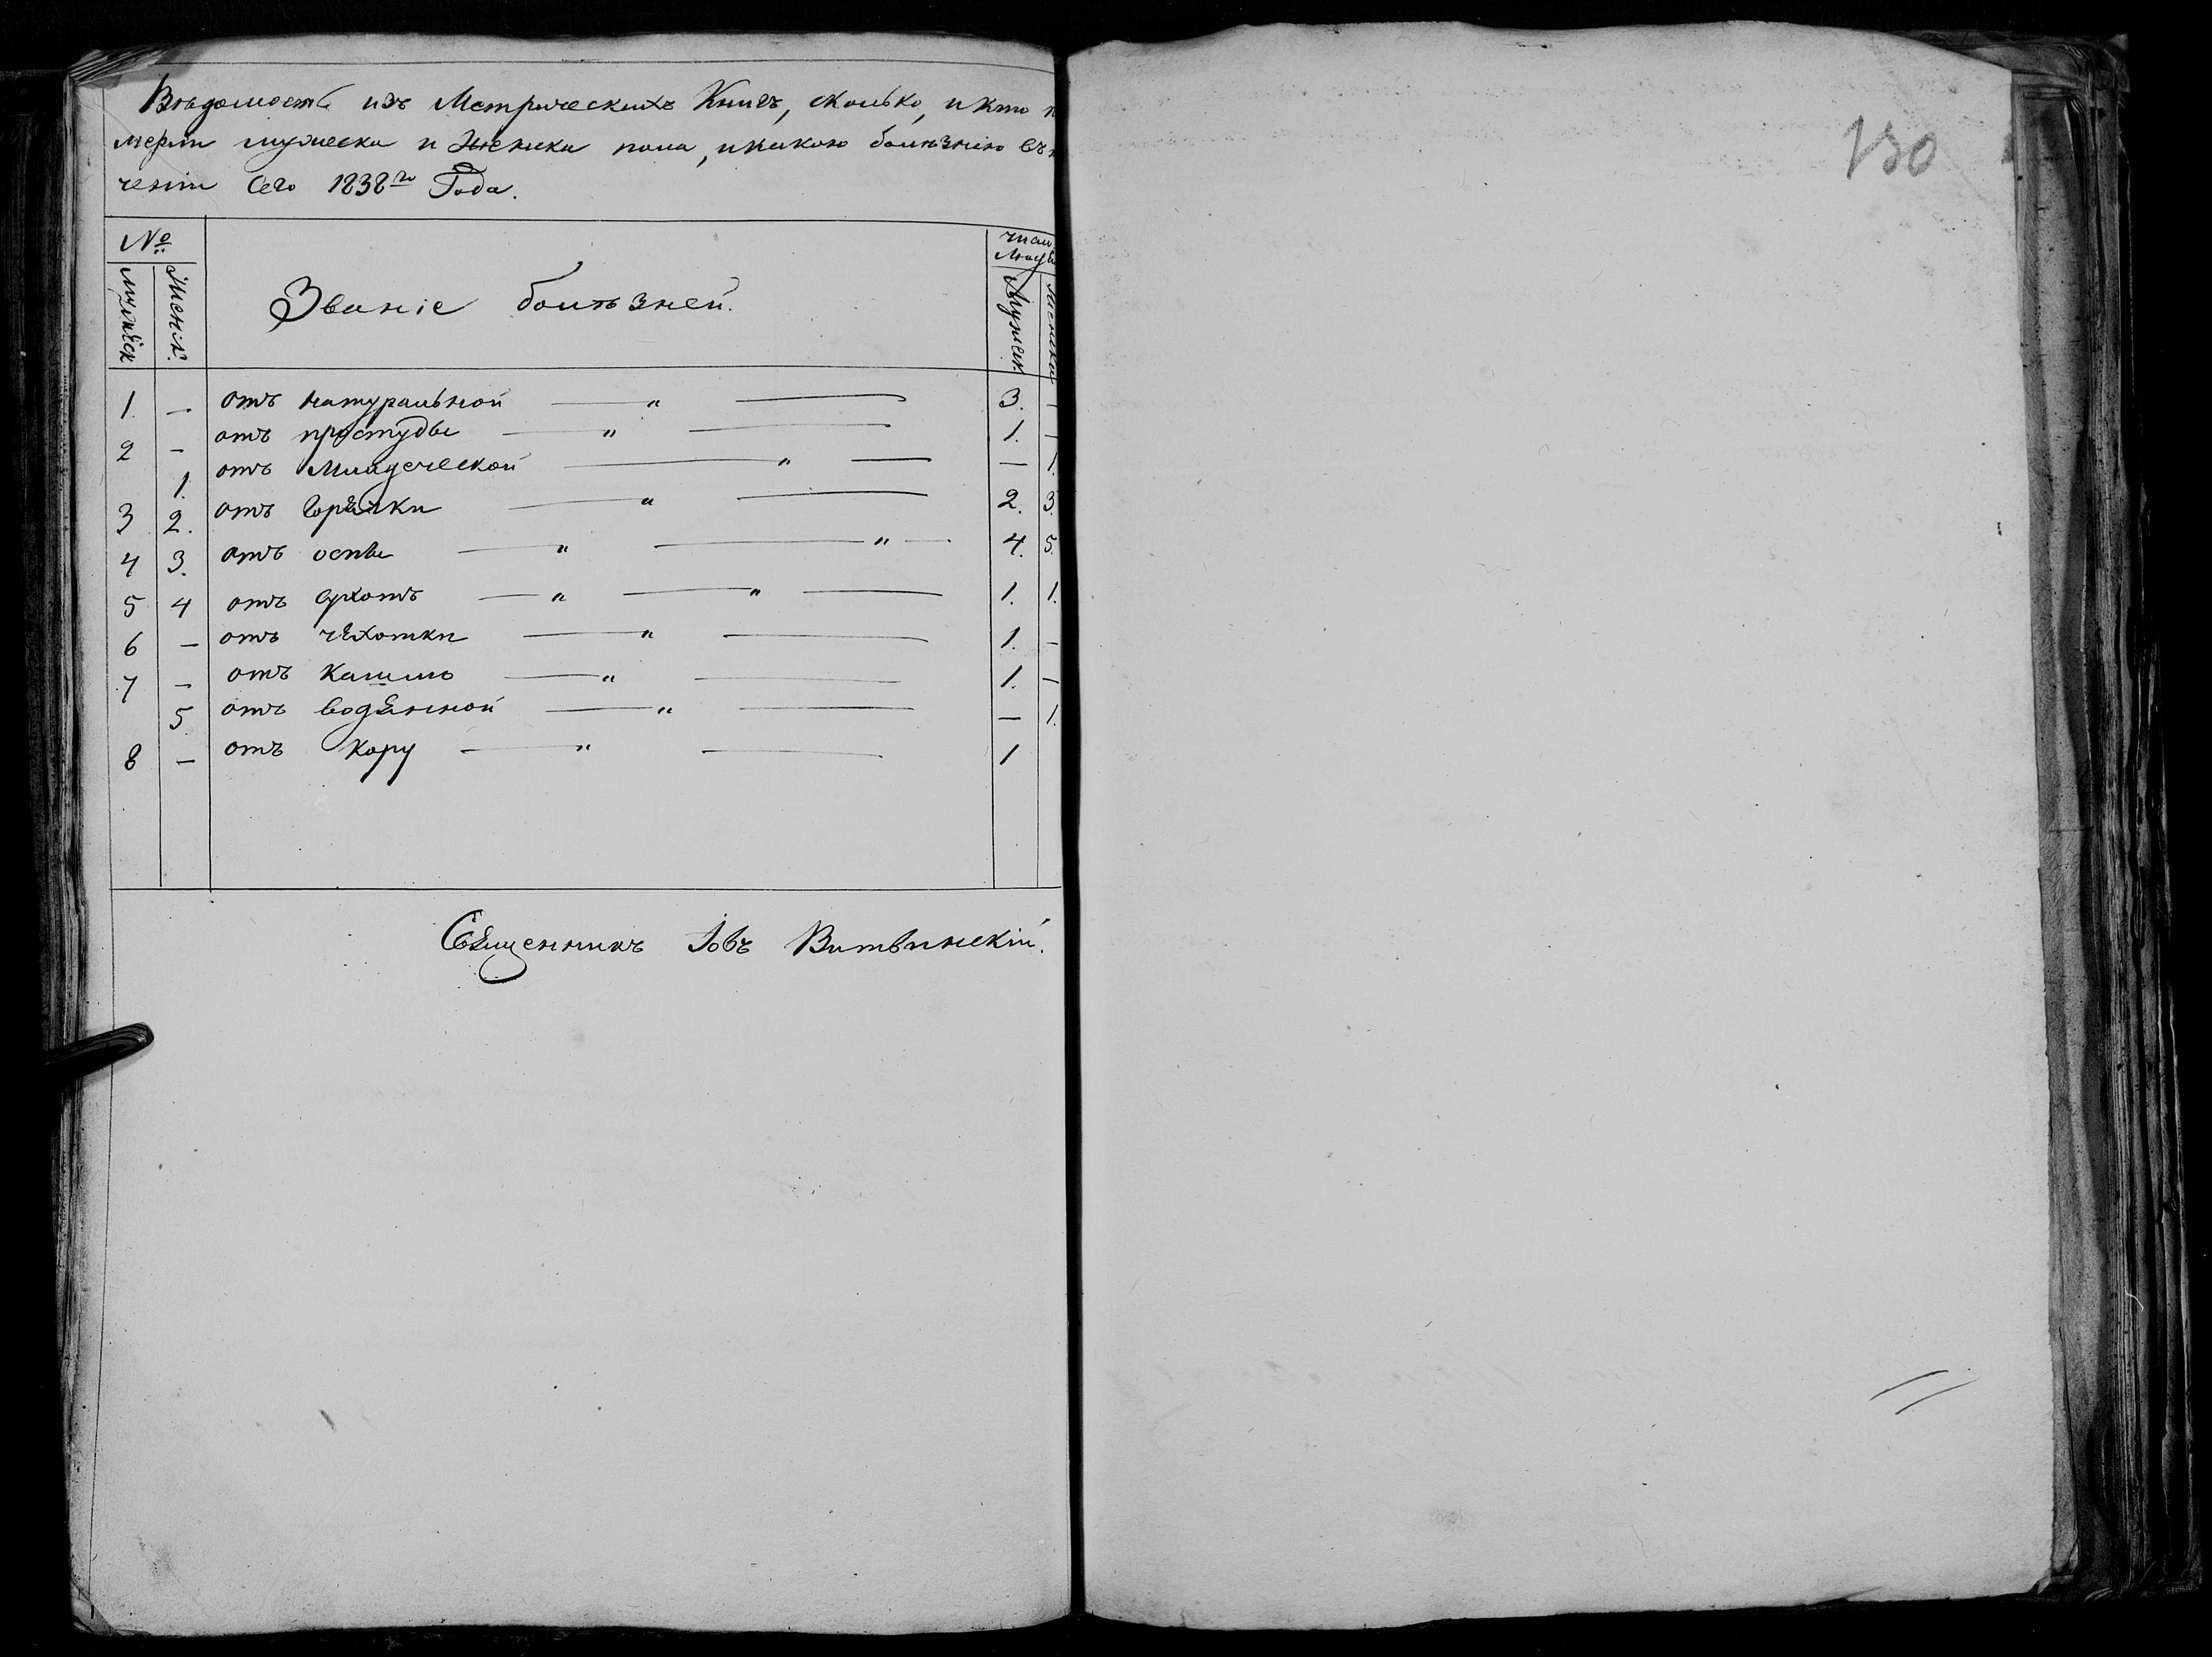 Вѣдомость изъ Метрическихъ Книгъ, сколько, и кто
мерли мужеска и женска пола, и какою болѣзнію въ
ченіи Сего 1838го Года.
№ Званіе болѣзней. число Людей
мужеск Женск. Мужеск. женска
1. — отъ натуральной — " — 3. —
2 — отъ простуды — " — 1. —
1. отъ Младеческой — " — — 1.
3 2. отъ Горячки — " — 2. 3.
4 3. отъ оспы — " — " — 4. 5.
5 4 отъ сухотъ — " — " — 1. 1.
6 — отъ чяхотки — " — 1. —
7 — отъ кашлю — " — 1. —
5. отъ водянной — " — — 1.
8 — отъ кору — " — 1
Священникъ Іовъ Витвинскій.
130